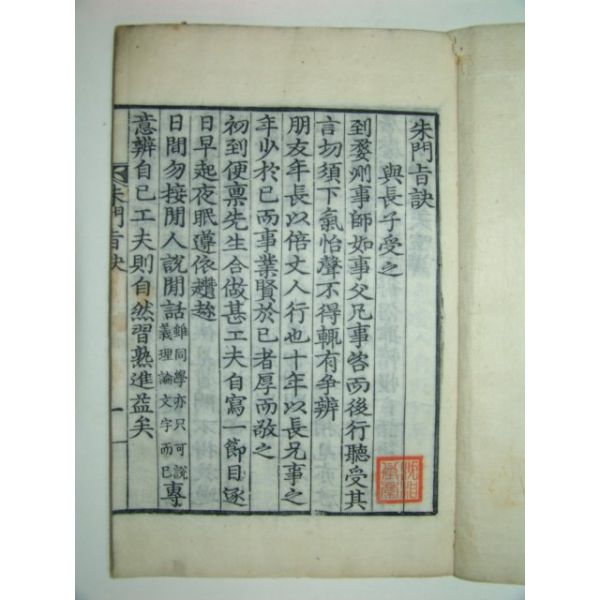 朱門旨訣
與長子受之
到婺州事師如事父凡事咨而後行聽受其
言切須下氣怡聲不得輒有爭辨
朋友年長以倍丈人行也十年以長兄事之
年少於己而事業賢於己者厚而敬之
初到便稟先生合做甚工夫自寫一節目逐
日早起夜眠遵依趲趁
日間勿接閒人說閒話雖同學亦只可說義理論文字而已專
意辨自己工夫則自然習熟進益矣
朱門旨訣
一